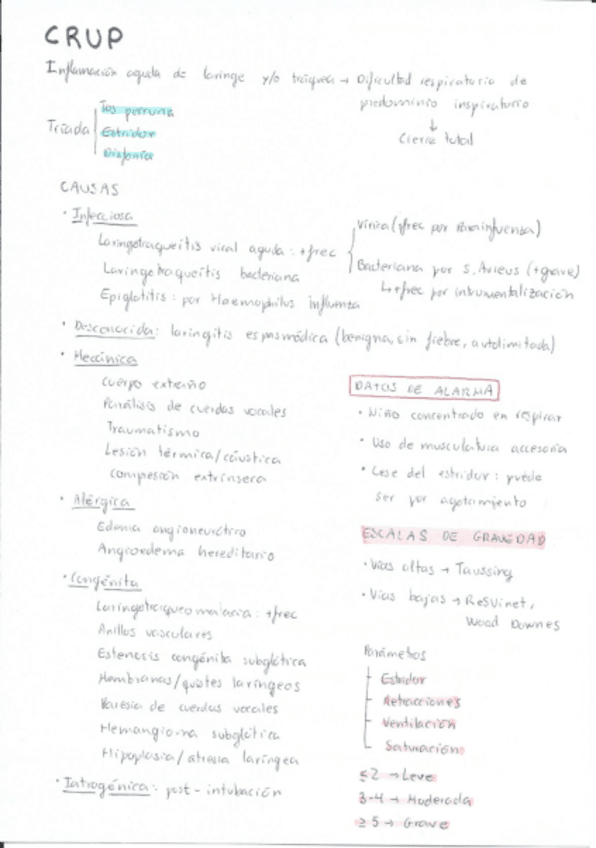 CRUP
Inflamación aguda de laringe y/o tráquea → Dificultad respiratoria de
predominio inspiratorio
↓
Cierre total
Tríada
Tos perruna
Estridor
Disfonía
CAUSAS
· Infecciosa
Laringotraqueitis viral aguda: +frec
Laringotraqueitis bacteriana
Epiglotitis: por Haemophilus Influenza
Vírica (+frec por Parainfluenza)
Bacteriana por S. Aureus (+grave)
↳ +frec por intrumentalización
· Desconocida: laringitis espasmódica (benigna, sin fiebre, autolimitada)
· Mecánica
Cuerpo extraño
Parálisis de cuerdas vocales
Traumatismo
Lesión térmica/cáustica
Compesión extrínseca
· Alérgica
Edema angioneurótico
Angioedema hereditario
· Congénita
Laringotraqueomalacia: +frec
Anillos vasculares
Estenosis congénita subglótica
Membranas/quistes laríngeos
Paresia de cuerdas vocales
Hemangioma subglótica
Hipoplasia/atresia laríngea
· Iatrogénica: post-intubación
DATOS DE ALARMA
· Niño concentrado en respirar
· Uso de musculatura accesoria
· Cese del estridor: puede
ser por agotamiento
ESCALAS DE GRAVEDAD
· Vías altas → Taussing
· Vías bajas → ReSVinet,
Wood Downes
Parámetros
Estridor
Retracciones
Ventilación
Saturación
≤2 → Leve
3-4 → Moderada
≥5 → Grave